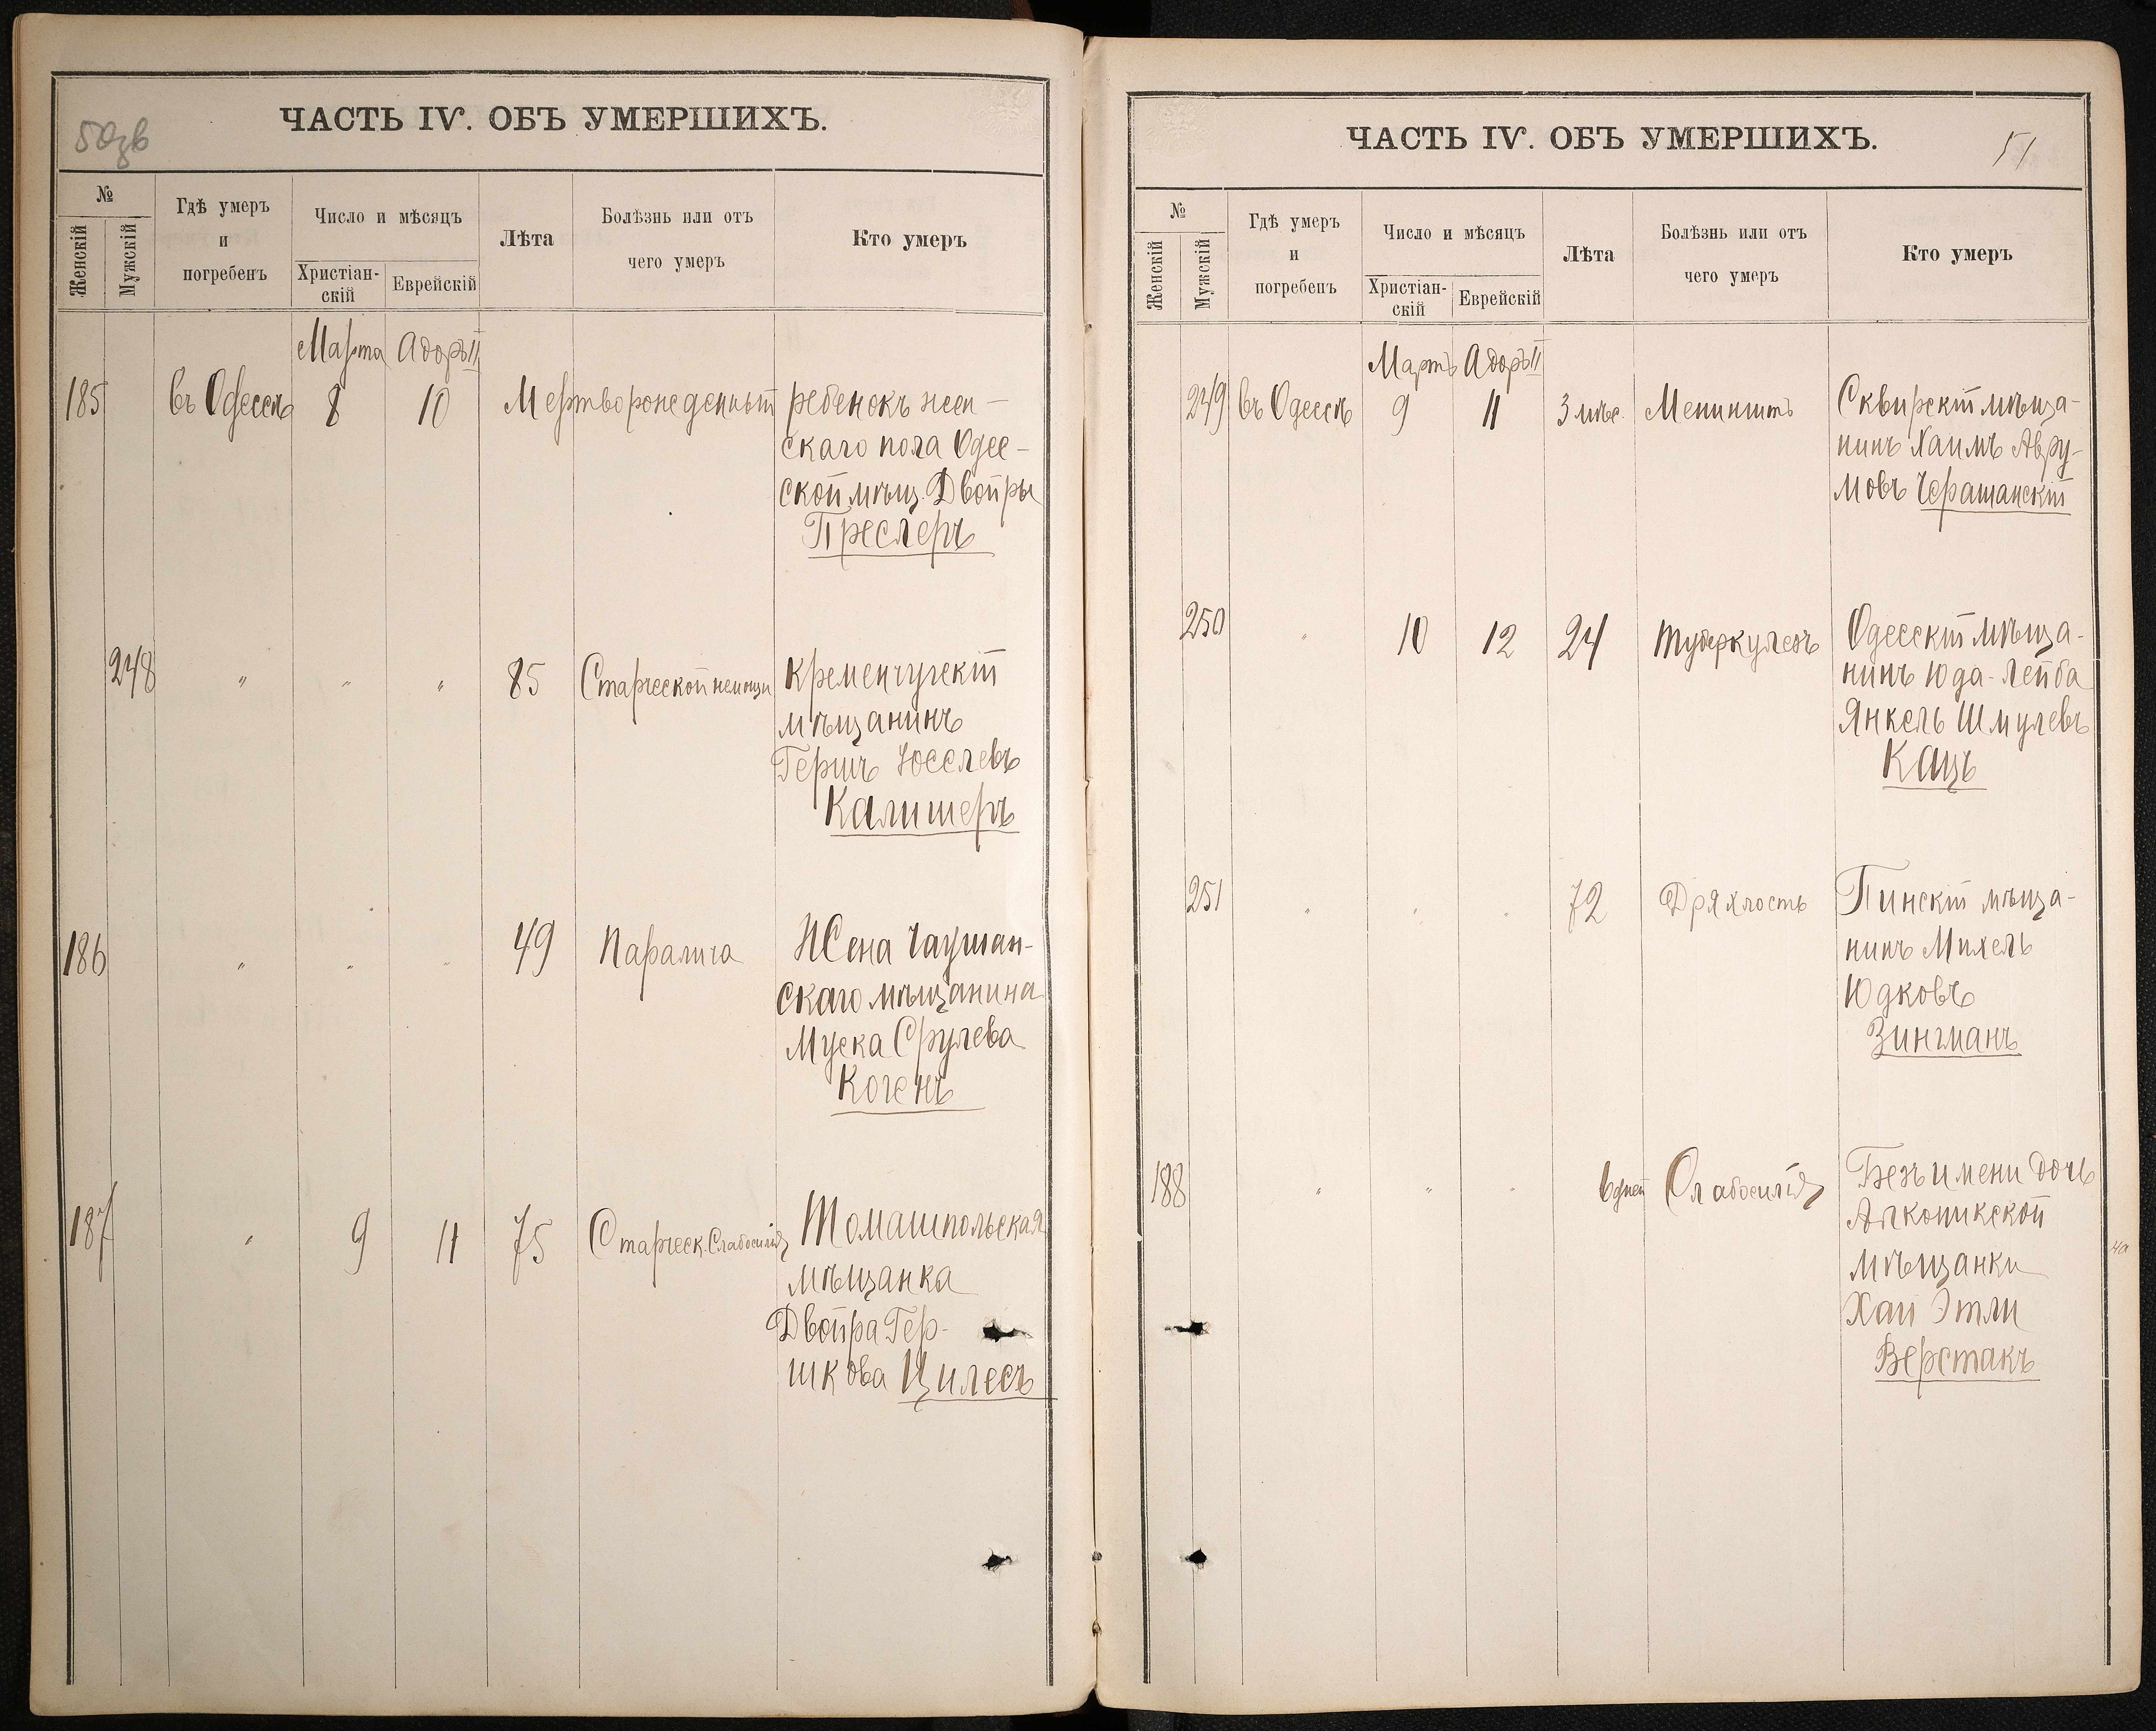 50зв
ЧАСТЬ IV. ОБЪ УМЕРШИХЪ.
№
Женскій
Мужскій
Гдѣ умеръ
и
погребенъ
Число и мѣсяцъ
Христіан-
скій
Еврейскій
Лѣта
Болѣзнь или отъ
чего умеръ
Кто умеръ
Марта Адоръ II
185 въ Одессѣ 8 10 Мертворожденный ребенокъ жен-
скаго пола Одес-
ской мѣщ. Двойры
Преслеръ
248 " " " 85 Старческой немощи Кременчугскій
мѣщанинъ
Гершъ Іоселевъ
Калишеръ
186 " " " 49 Паралича Жена Чаушан-
скаго мѣщанина
Муска Срулева
Когенъ
187 " 9 11 75 Старческ. Слабосилія Томашпольская
мѣщанка
Двойра Гер-
шкова Цилесъ
ЧАСТЬ IV. ОБЪ УМЕРШИХЪ.
51
№
Женскій
Мужскій
Гдѣ умеръ
и
погребенъ
Число и мѣсяцъ
Христіан-
скій
Еврейскій
Лѣта
Болѣзнь или отъ
чего умеръ
Кто умеръ
Мартъ Адоръ II
249 въ Одессѣ 9 11 3 мѣс. Менингитъ Сквирскій мѣща-
нинъ Хаимъ Авру-
мовъ Черашанскій
250 " 10 12 24 Туберкулезъ Одесскій мѣща-
нинъ Юда-Лейба
Янкель Шмулевъ
Кацъ
251 " " " 72 Дряхлость Пинскій мѣща-
нинъ Михель
Юдковъ
Зингманъ
188 " " " 6 дней Слабосилія Безъ имени дочь
мѣщанки
Хаи Этли
Верстакъ